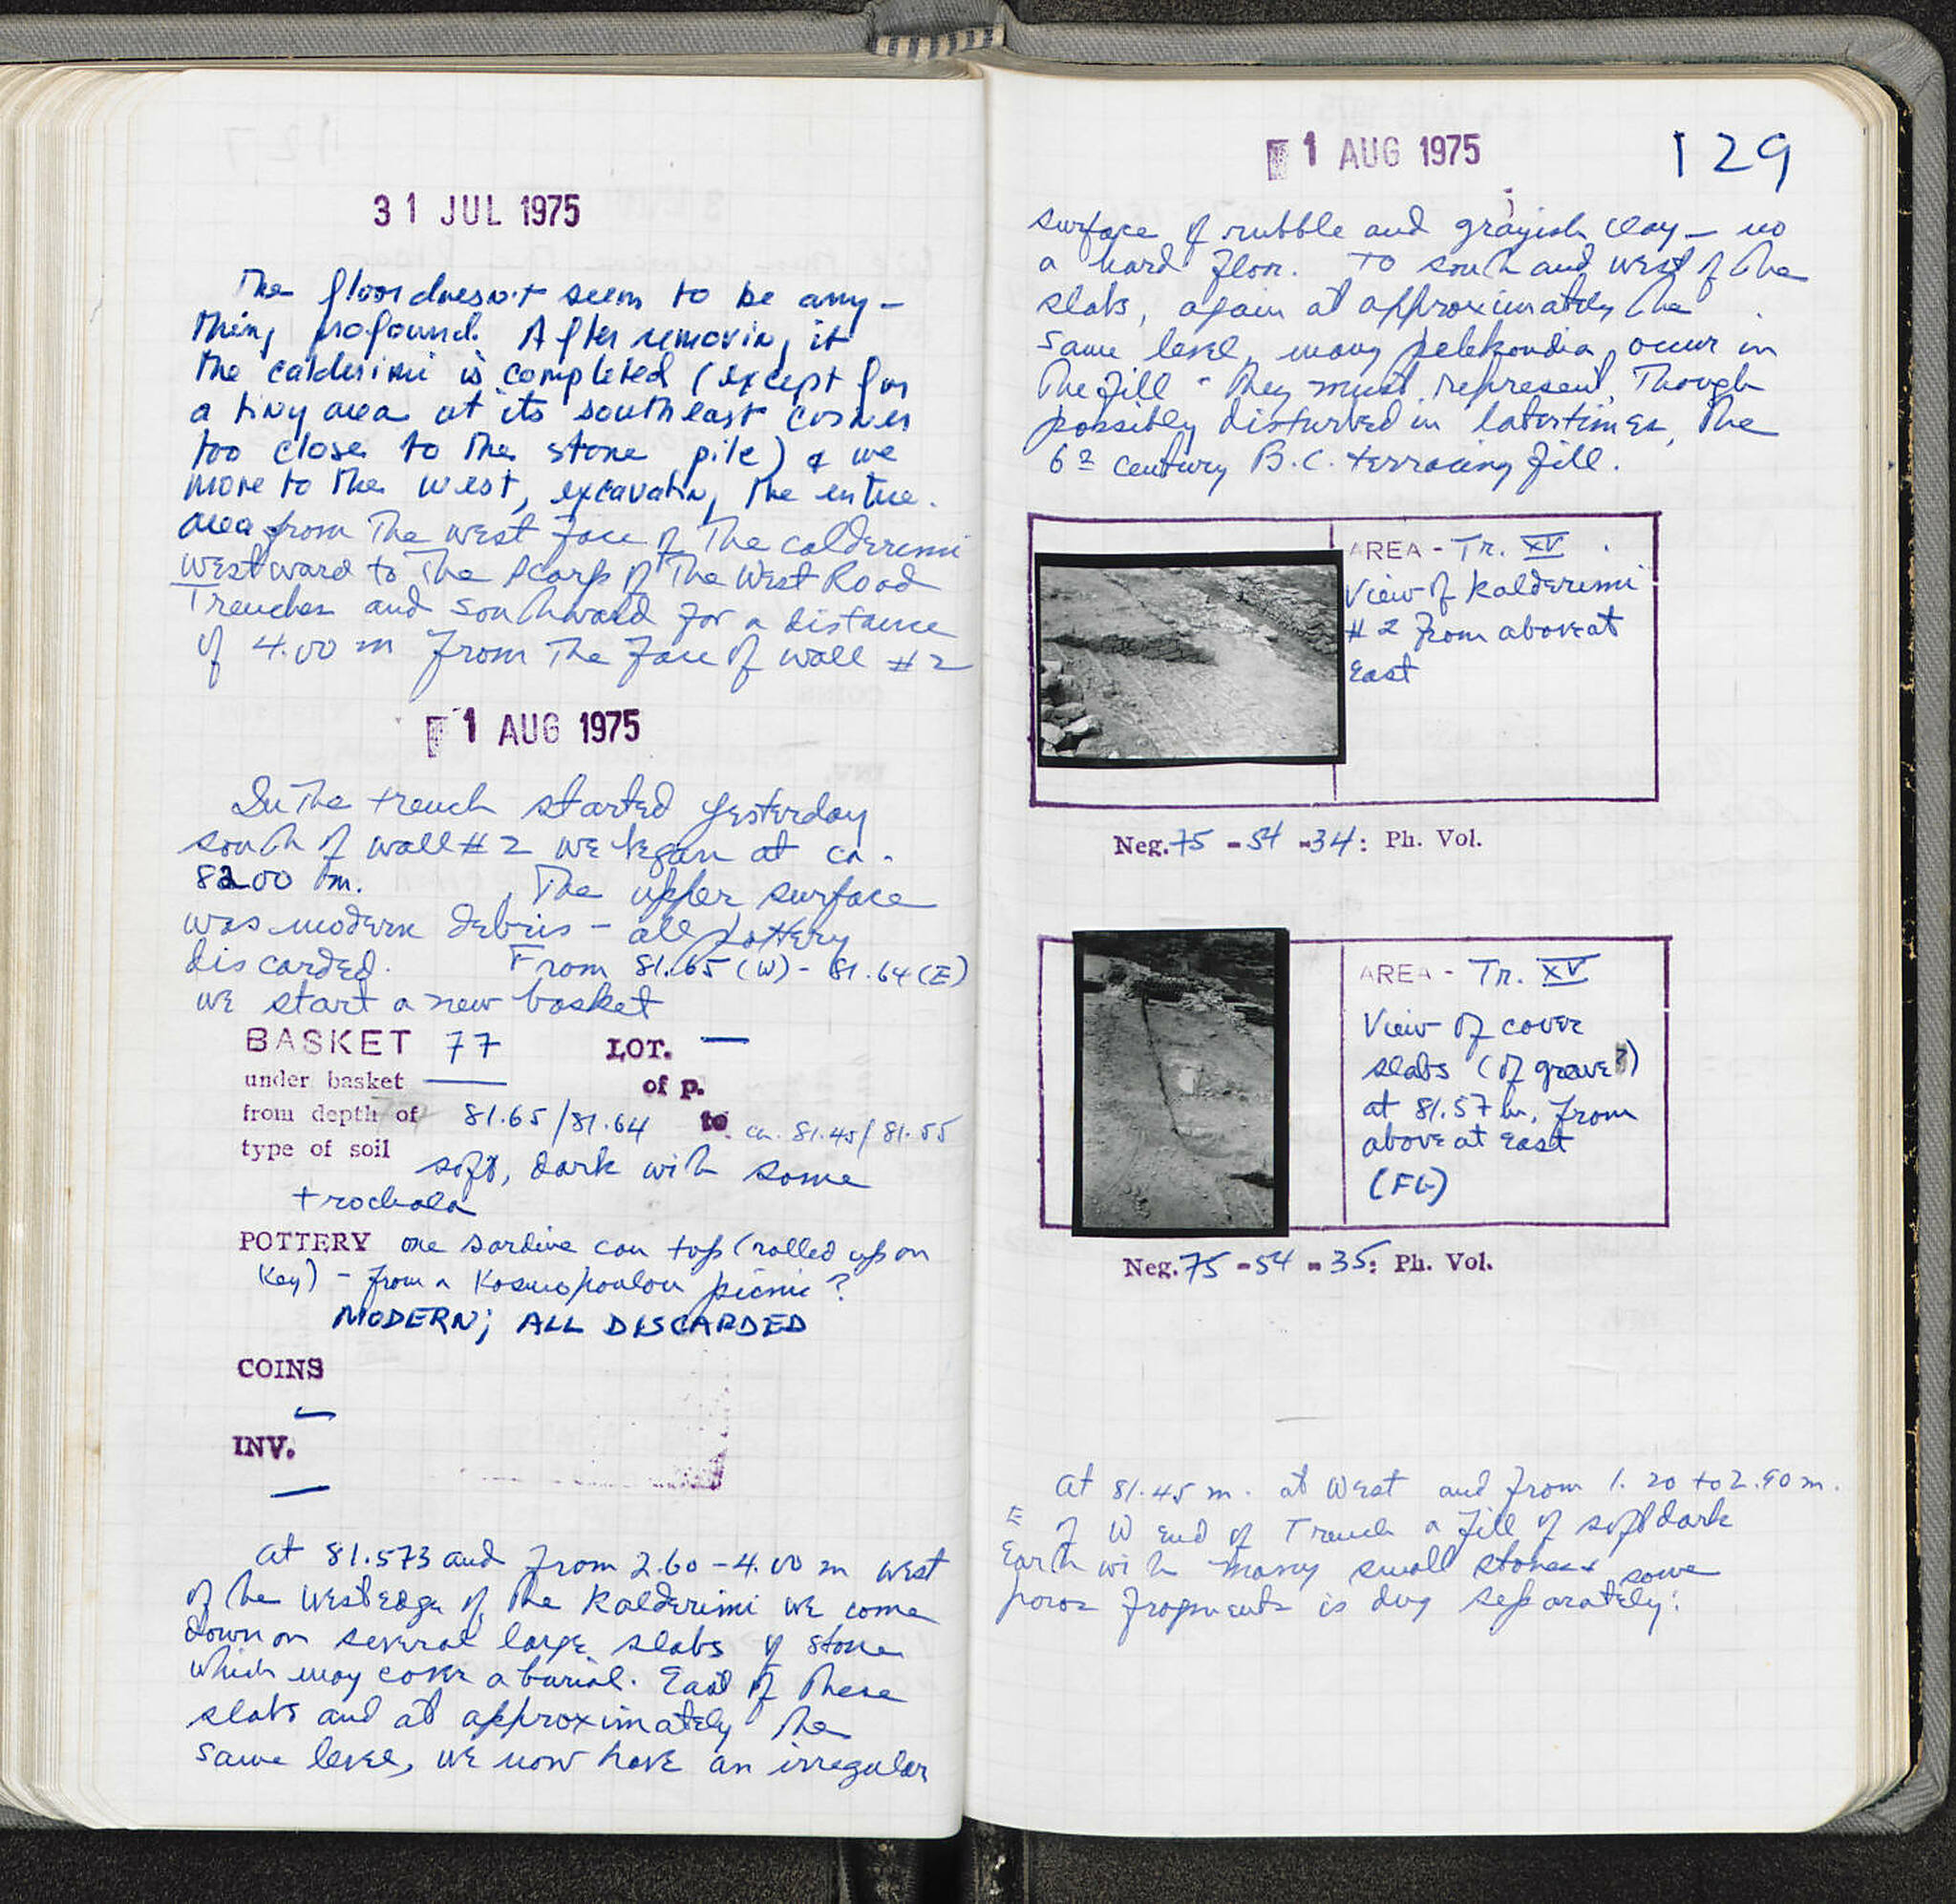 31 JUL 1975
The floor doesn't seem to be any-
thing profound. After removing it
the calderimi is completed (except for
a tiny area at its southeast corner
too close to the stone pile) & we
move to the west, excavating the entire
area from the west face of the calderimi
westward to the scarp of the West Road
Trenches and southward for a distance
of 4.00 m from the face of wall #2
1 AUG 1975
In the trench started yesterday
south of wall #2 we began at ca.
82.00 m. The upper surface
was modern debris - all pottery
discarded. From 81.65 (W) - 81.64 (E)
we start a new basket
BASKET 77 LOT. —
under basket — of p.
from depth of 81.65/81.64 to ca. 81.45/81.55
type of soil soft, dark with some
trochala
POTTERY one sardine can top (rolled up on
key) - from a Kosmopoulou picnic?
MODERN; ALL DISCARDED
COINS
—
INV.
—
at 81.573 and from 2.60 - 4.00 m west
of the west edge of the kalderimi we come
down on several large slabs of stone
which may cover a burial. East of these
slabs and at approximately the
same level, we now have an irregular
1 AUG 1975 129
surface of rubble and grayish clay - no
a hard floor. To south and west of the
slabs, again at approximately the
same level, many pelekoudia occur in
the fill - they must represent, though
possibly disturbed in later times, the
6th century B.C. terracing fill.
AREA - Tr. XV
View of kalderimi
#2 from above at
East
Neg. 75 - 54 - 34: Ph. Vol.
AREA - Tr. XV
View of cover
slabs (of grave?)
at 81.57 m, from
above at East
(FG)
Neg. 75 - 54 - 35: Ph. Vol.
at 81.45 m. at West and from 1.20 to 2.90 m.
E of W end of Trench a fill of soft dark
Earth with many small stones & some
poros fragments is dug separately: